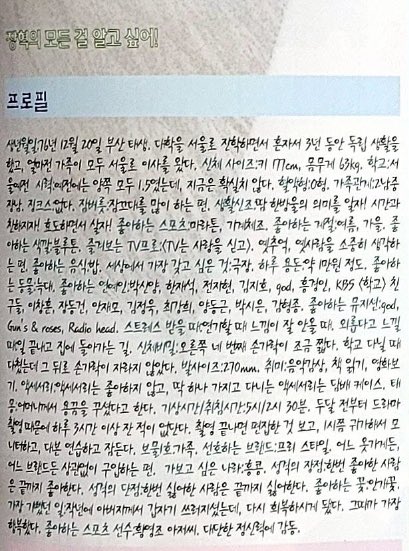 장혁의 모든 걸 알고 싶어!
프로필
생년월일:76년 12월 20일 부산 태생. 대학을 서울로 진학하면서 혼자서 3년 동안 독립 생활을
했고, 얼마전 가족이 모두 서울로 이사를 왔다. 신체 사이즈:키 177cm, 몸무게 63kg. 학교:서
울예전 시력:예전에는 양쪽 모두 1.5였는데, 지금은 확실치 않다. 혈액형:O형. 가족관계:2남중
장남. 징크스:없다. 잠버릇:잠꼬대를 많이 하는 편. 생활신조:땀 한방울의 의미를 알자! 시간과
친하자! 효도하면서 살자! 좋아하는 스포츠:마라톤, 기계체조. 좋아하는 계절:여름, 가을. 좋아
하는 색깔:블루톤. 즐겨보는 TV프로:<TV는 사랑을 싣고>. 옛추억, 옛사람을 소중히 생각하
는 편. 좋아하는 음식:밥. 세상에서 가장 갖고 싶은 것:극장. 하루 용돈:약 1만원 정도. 좋아하
는 동물:늑대. 좋아하는 연예인:박신양, 한재석, 전지현, 김지호, god, 홍경인, KBS <학교> 친
구들, 이창훈, 장동건, 안재모, 김정욱, 최강희, 양동근, 박시은, 김형종. 좋아하는 뮤지션:god,
Gun's & roses, Radio head. 스트레스 받을 때:연기할 때 느낌이 잘 안올 때. 외롭다고 느낄
때:일 끝내고 집에 돌아가는 길. 신체비밀:오른쪽 네 번째 손가락이 조금 짧다. 학교 다닐 때
다쳤는데 그 뒤로 손가락이 자라지 않았다. 발사이즈:270mm. 취미:음악감상, 책 읽기, 영화보
기. 액세서리:액세서리는 좋아하지 않고, 딱 하나 가지고 다니는 액세서리는 담배 케이스. 태
몽:어머니께서 용꿈을 꾸셨다고 한다. 기상시간/취침시간:5시/2시 30분. 두달 전부터 드라마
촬영 때문에 하루 3시간 이상 잔 적이 없단다. 촬영 끝나면 편집한 것 보고, 1시쯤 귀가해서 모
니터하고, 대본 연습하고 잠든다. 보물1호:가족. 선호하는 브랜드:프리 스타일. 어느 옷가게든,
어느 브랜드든 상관없이 구입하는 편. 가보고 싶은 나라:홍콩. 성격의 장점:한번 좋아한 사람
은 끝까지 좋아한다. 성격의 단점:한번 싫어한 사람은 끝까지 싫어한다. 좋아하는 꽃:안개꽃.
가장 기뻤던 일:작년에 아버지께서 갑자기 쓰러지셨는데, 다시 회복하시게 됐다. 그때가 가장
행복했다. 좋아하는 스포츠 선수:황영조 아저씨. 대단한 정신력에 감동.